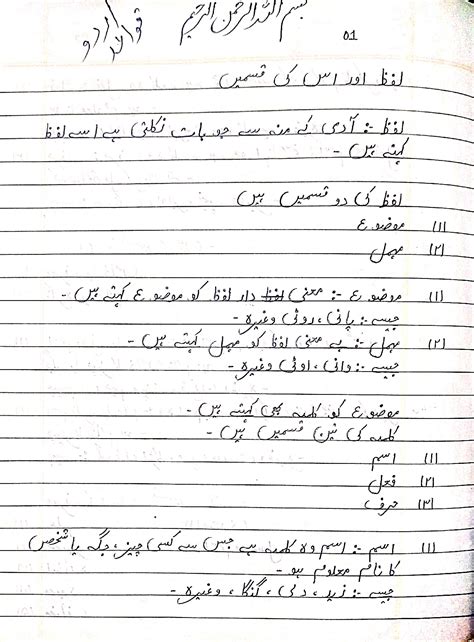 بسم اللہ الرحمن الرحیم
قواعد اردو
01
لفظ اور اس کی قسمیں
لفظ :- آدمی کے منہ سے جو بات نکلتی ہے اسے لفظ
کہتے ہیں -
لفظ کی دو قسمیں ہیں
(۱) موضوع
(۲) مہمل
(۱) موضوع :- معنی دار لفظ کو موضوع کہتے ہیں -
جیسے :- پانی ، روٹی وغیرہ -
(۲) مہمل :- بے معنی لفظ کو مہمل کہتے ہیں -
جیسے :- وانی ، اوٹی وغیرہ -
موضوع کو کلمہ بھی کہتے ہیں -
کلمہ کی تین قسمیں ہیں -
(۱) اسم
(۲) فعل
(۳) حرف
(۱) اسم :- اسم وہ کلمہ ہے جس سے کسی چیز ، جگہ یا شخص
کا نام معلوم ہو -
جیسے :- زید ، دلی ، گنگا ، وغیرہ -